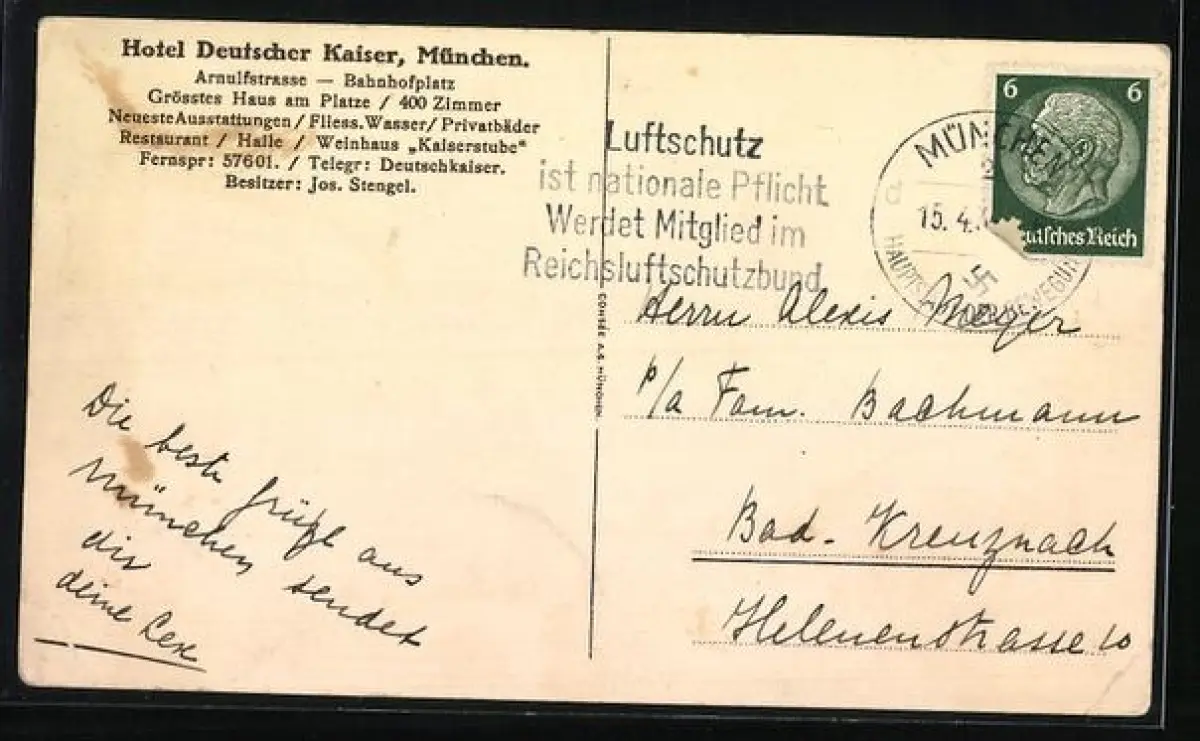 Hotel Deutscher Kaiser, München.
Arnulfstrasse — Bahnhofplatz
Grösstes Haus am Platze / 400 Zimmer
Neueste Ausstattungen / Fliess. Wasser / Privatbäder
Restaurant / Halle / Weinhaus „Kaiserstube"
Fernspr: 57601. / Telegr: Deutschkaiser.
Besitzer: Jos. Stengel.
Luftschutz
ist nationale Pflicht
Werdet Mitglied im
Reichsluftschutzbund
MÜNCHEN
15. 4.
HAUPTS DER BEWEGUN
6 6
eutsches Reich
CONSEE A.G. MÜNCHEN.
Herrn Alexis Meyer
p/a Fam. Bachmann
Bad. Kreuznach
Helenenstrasse 10
Die beste grüße aus
München sendet
dir
deine